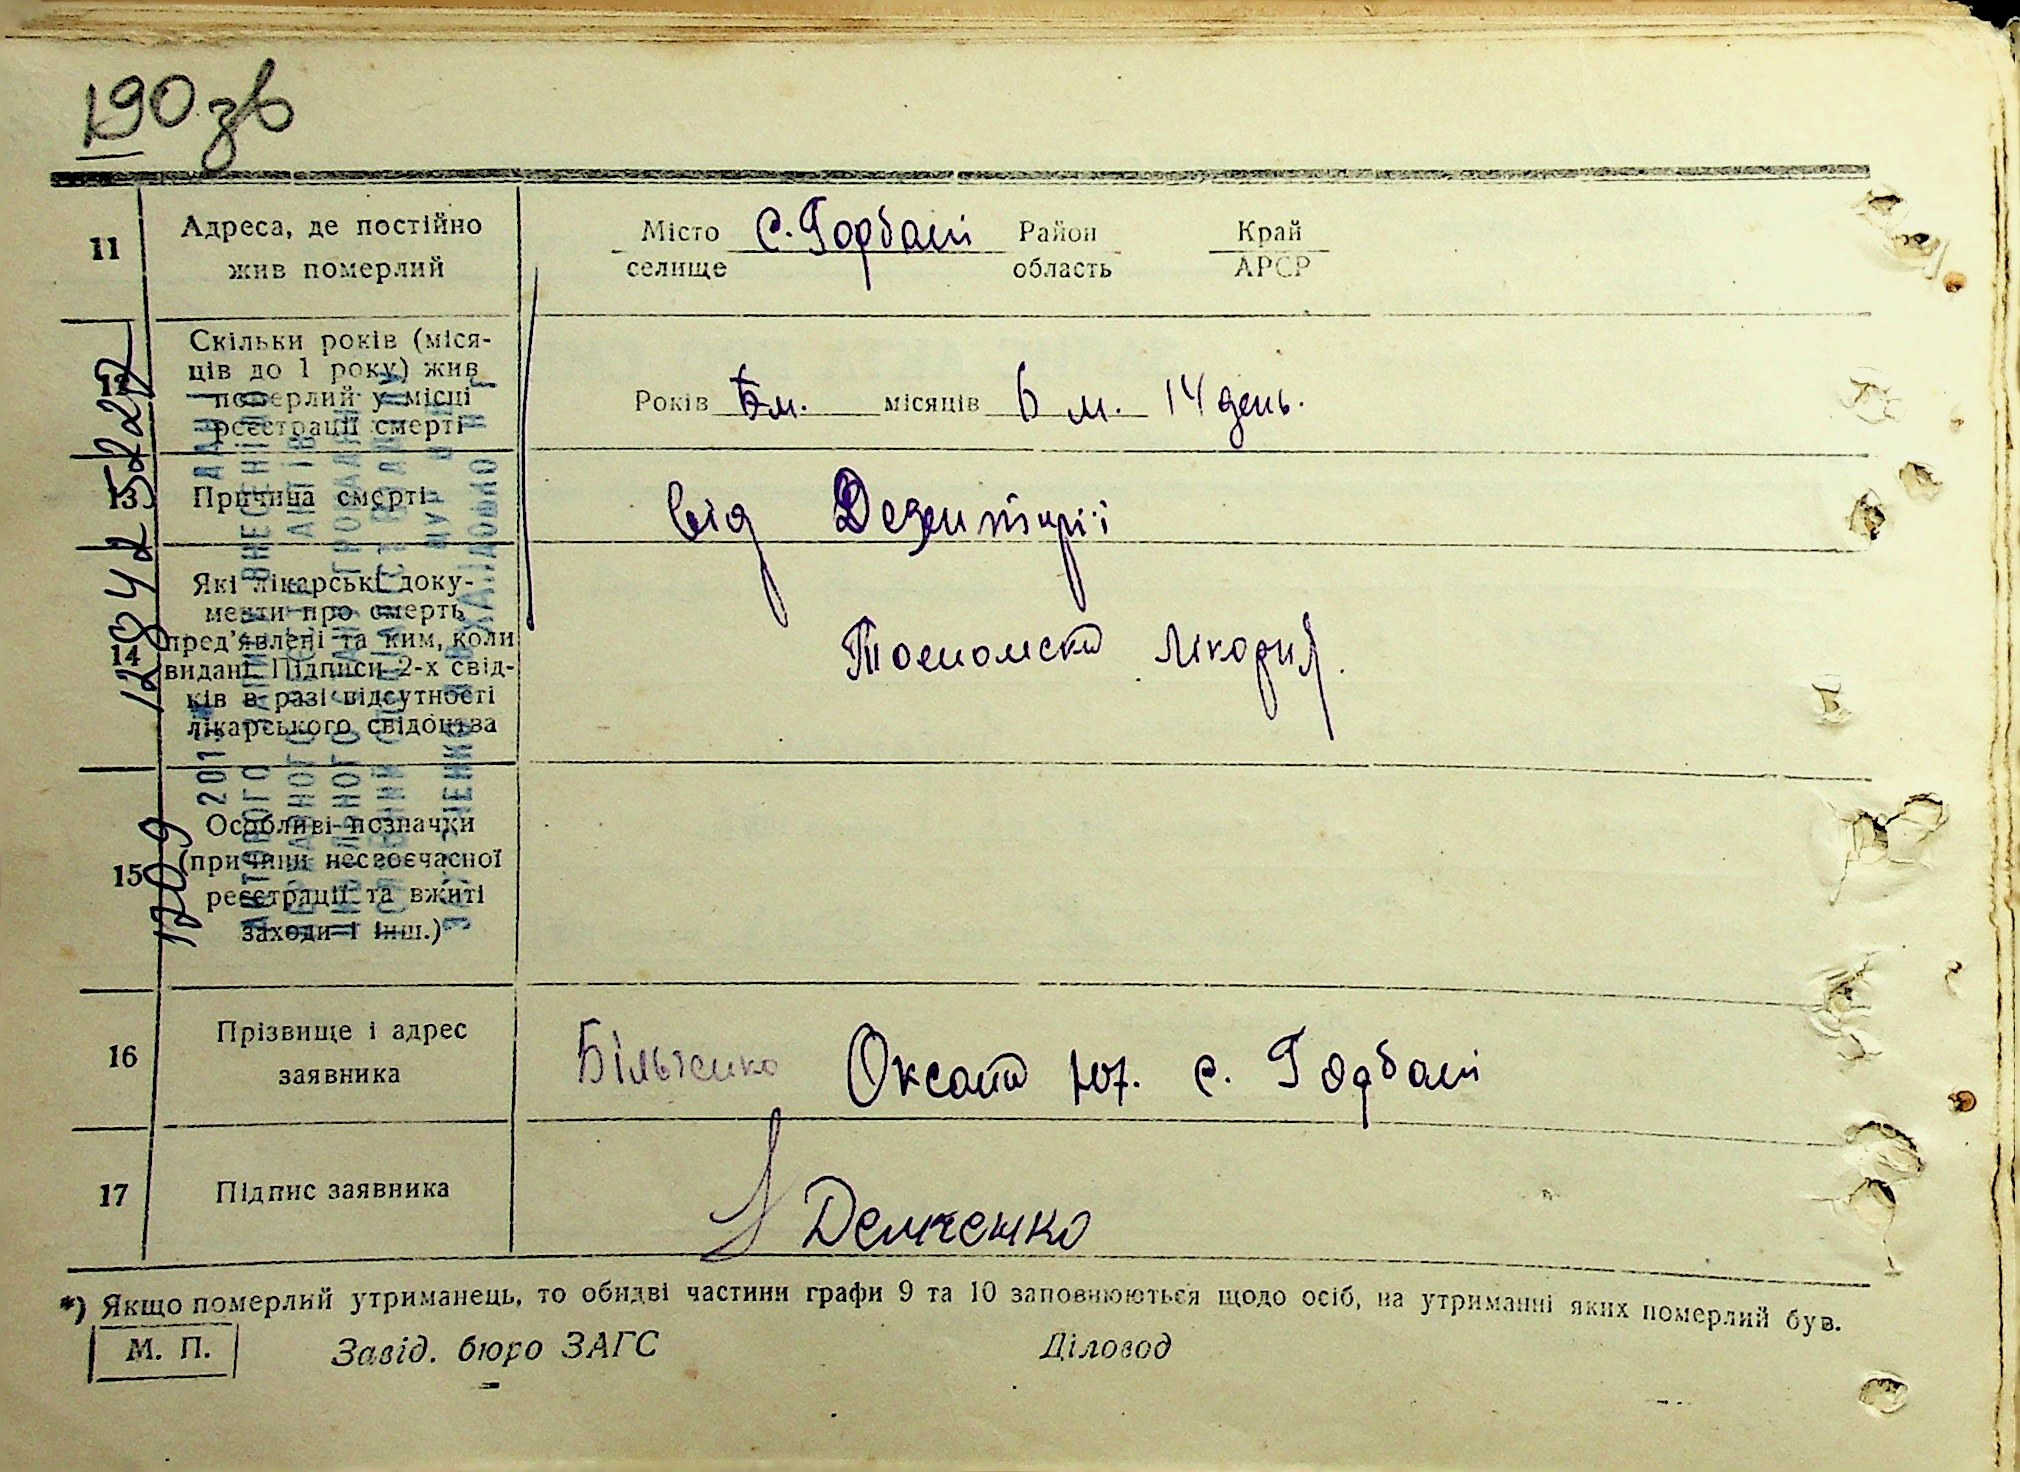 190 зв
11
Адреса, де постійно
жив померлий
Місто с. Горбані Район Край
селище область АРСР
12
Скільки років (міся-
ців до 1 року) жив
померлий у місці
реєстрації смерті
Років 6м. місяців 6 м. 14 день.
13
Причина смерті
від Дезентирії
14
Які лікарські доку-
менти про смерть
пред'явлені та ким, коли
видані. Підписи 2-х свід-
ків в разі відсутності
лікарського свідоцтва
лікария.
15
Особливі позначки
(причини несвоєчасної
реєстрації та вжиті
заходи і інш.)
16
Прізвище і адрес
заявника
Більченко Оксана Юх. с. Горбані
17
Підпис заявника
Демченко
*) Якщо померлий утриманець, то обидві частини графи 9 та 10 заповнюються щодо осіб, на утриманні яких померлий був.
М. П.
Завід. бюро ЗАГС
Діловод